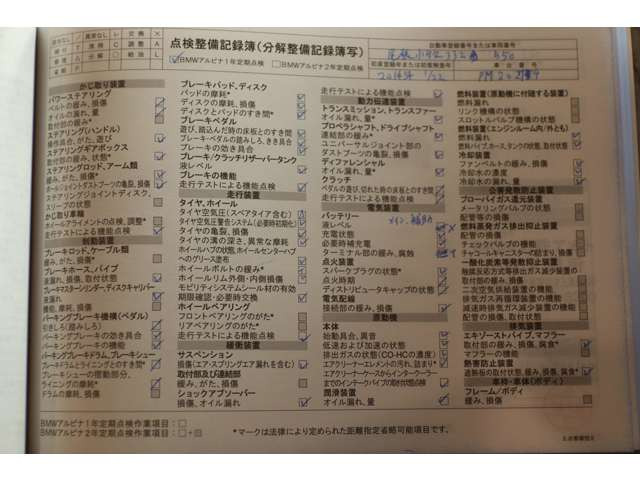 点検整備記録簿(分解整備記録簿写)
BMWアルピナ1年定期点検 BMWアルピナ2年定期点検
自動車登録番号または車両番号
かじ取り装置
パワーステアリング
ベルトの緩み、損傷
オイルの漏れ、量
取付部の緩み*
ステアリング(ハンドル)
操作具合、がた、遊び
ステアリングギアボックス
取付部の緩み、状態*
ステアリングロッド、アーム類
緩み、がた、損傷*
ボールジョイントダストブーツの亀裂、損傷
ステアリングジョイントディスク、
スリーブの状態
かじ取り車輪
ホイールアライメントの点検、調整*
走行テストによる機能点検
制動装置
ブレーキロッド、ケーブル類
緩み、がた、損傷*
ブレーキホース、パイプ
液漏れ、損傷、取付状態
ブレーキマスターシリンダー、ディスクキャリパー
液漏れ
機能、摩耗、損傷
パーキングブレーキ機構(ペダル)
引きしろ(踏みしろ)
パーキングブレーキの効き具合
パーキングブレーキの機能
パーキングブレーキドラム、ブレーキシュー
ブレーキドラムとライニングとのすき間*
ブレーキシューの摺動部分、
ライニングの摩耗*
ドラムの摩耗、損傷
ブレーキパッド、ディスク
パッドの摩耗*
ディスクの摩耗、損傷
ディスクとパッドのすき間*
ブレーキペダル
遊び、踏込んだ時の床板とのすき間
ブレーキペダルの踏みしろ、きき具合
ブレーキの効き具合
ブレーキ/クラッチリザーバータンク
液レベル
ブレーキの機能
走行テストによる機能点検
走行装置
タイヤ、ホイール
タイヤ空気圧(スペアタイア含む)
タイヤ空気圧警告システム(必要時初期化)
タイヤの亀裂、損傷
タイヤの溝の深さ、異常な摩耗
ホイールハブの状態、ホイールセンターハブ
へのグリース塗布
ホイールボルトの緩み*
ホイールリム外側・内側損傷
モビリティシステムシール材の有効
期限確認・必要時交換
ホイールベアリング
フロントベアリングのがた*
リアベアリングのがた*
走行テストによる機能点検
緩衝装置
サスペンション
損傷(エア・スプリングエア漏れを含む)
取付部及び連結部
緩み、がた、損傷
ショックアブソーバー
損傷、オイル漏れ
走行テストによる機能点検
動力伝達装置
トランスミッション、トランスファー
オイル漏れ、量*
プロペラシャフト、ドライブシャフト
連結部の緩み*
ユニバーサルジョイント部の
ダストブーツの亀裂、損傷
ディファレンシャル
オイル漏れ、量*
クラッチ
ペダルの遊び、切れた時の床板とのすき間
走行テストによる機能点検
電気装置
バッテリー
液レベル
充電状態
必要時補充電
ターミナル部の緩み、腐蝕
点火装置
スパークプラグの状態*
点火時期
ディストリビュータキャップの状態
電気配線
接続部の緩み、損傷
原動機
本体
始動具合、異音
低速および加速の状態
排出ガスの状態(CO・HCの濃度)
エアクリーナーエレメントの汚れ、詰まり*
エアクリーナーケースからインタークーラー
までのインテークパイプの取付状態点検
潤滑装置
オイル漏れ、量
燃料装置(原動機に付随する装置)
燃料漏れ
リンク機構の状態
スロットルバルブ機構の状態
燃料装置(エンジンルーム内/外とも)
燃料漏れ
燃料パイプ、ホース、タンクの状態、取付状態
冷却装置
ファンベルトの緩み、損傷
冷却水の濃度
冷却水の漏れ、量
公害発散防止装置
ブローバイガス還元装置
メータリングバルブの状態
配管等の損傷
燃料蒸発ガス排出抑止装置
配管等の損傷
チェックバルブの機能
チャコールキャニスターの詰まり、損傷
一酸化炭素等発散防止装置
触媒反応方式等排出ガス減少装置
の取付部の緩み、損傷
二次空気供給装置の機能
排気ガス再循環装置の機能
減速時排気ガス減少装置の機能
配管の損傷、取付状態
排気装置
エキゾーストパイプ、マフラー
取付部の緩み、損傷、腐食*
マフラーの機能
熱害防止装置
遮熱板の取付状態、緩み、損傷、腐食*
車枠・車体(ボディ)
フレーム/ボディ
緩み、損傷
BMWアルピナ1年定期点検作業項目:
BMWアルピナ2年定期点検作業項目: +
*マークは法律により定められた距離指定省略可能項目です。